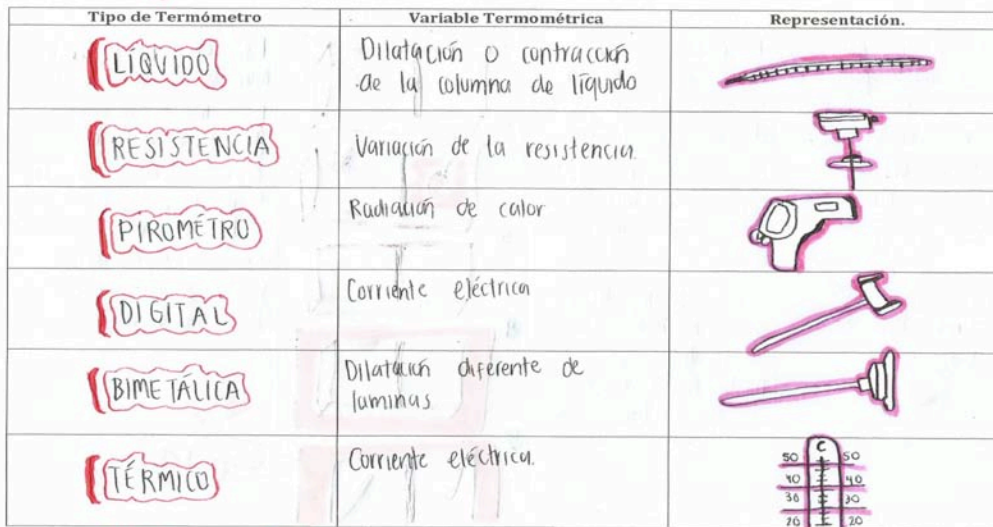 Tipo de Termómetro Variable Termométrica Representación.
LÍQUIDO Dilatación o contracción
de la columna de líquido
RESISTENCIA Variación de la resistencia.
PIROMÉTRO Radiación de calor
DIGITAL Corriente eléctrica
BIMETÁLICA Dilatación diferente de
laminas
TÉRMICO Corriente eléctrica.
C
50 50
40 40
30 30
20 20